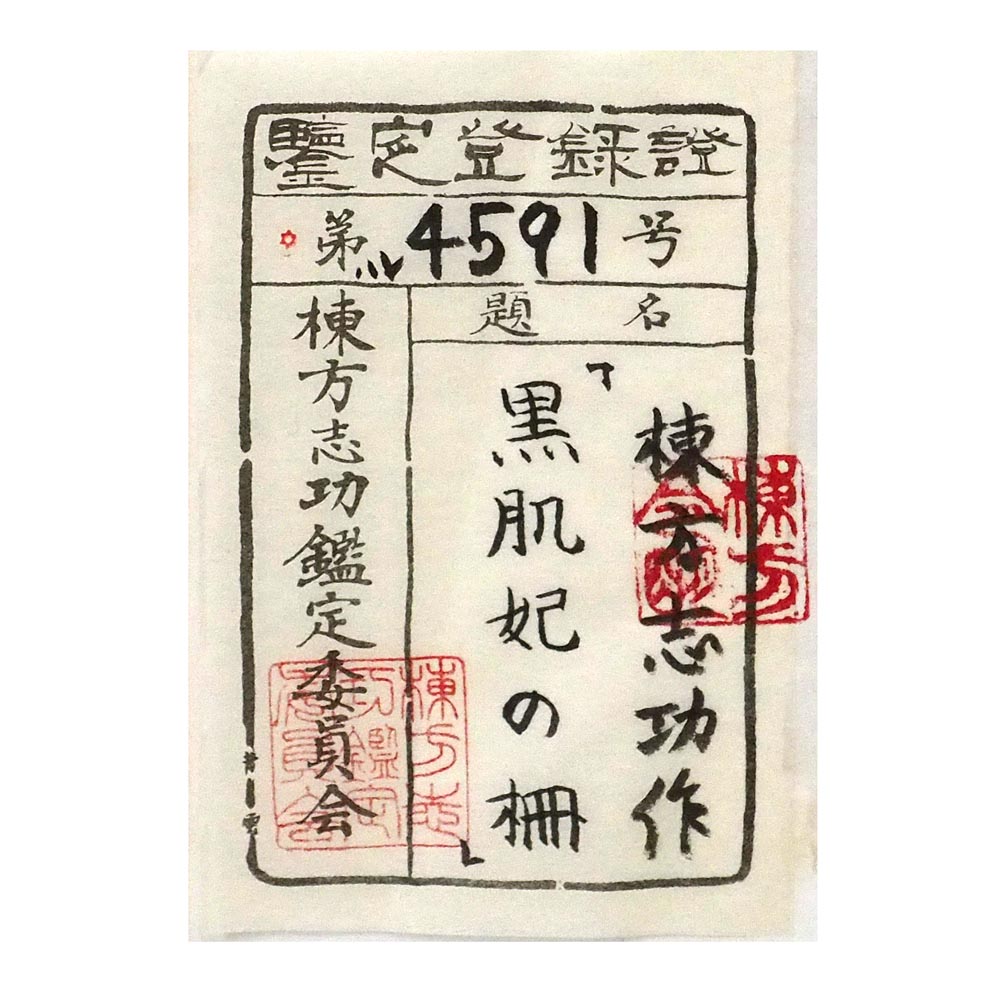 鑒定登録證
第4591号
題名
棟方志功作
「黒肌妃の柵」
棟方志功鑑定委員会
棟方
棟方志功鑑定委員会